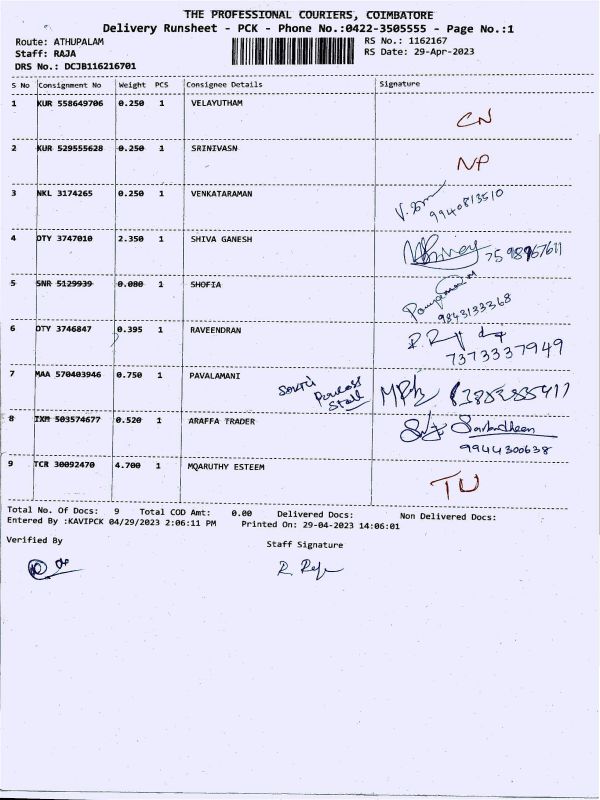 THE PROFESSIONAL COURIERS, COIMBATORE
Delivery Runsheet - PCK - Phone No.:0422-3505555 - Page No.:1
Route: ATHUPALAM RS No.: 1162167
Staff: RAJA RS Date: 29-Apr-2023
DRS No.: DCJB116216701
S No Consignment No Weight PCS Consignee Details Signature
1 KUR 558649706 0.250 1 VELAYUTHAM CN
2 KUR 529555628 0.250 1 SRINIVASN NP
3 NKL 3174265 0.250 1 VENKATARAMAN
9940813510
4 OTY 3747010 2.350 1 SHIVA GANESH
5 SNR 5129939 0.080 1 SHOFIA
9843133368
6 OTY 3746847 0.395 1 RAVEENDRAN
7373337949
7 MAA 570403946 0.750 1 PAVALAMANI
Stall
8 IXM 503574677 0.520 1 ARAFFA TRADER
9944300638
9 TCR 30092470 4.700 1 MQARUTHY ESTEEM TU
Total No. Of Docs: 9 Total COD Amt: 0.00 Delivered Docs: Non Delivered Docs:
Entered By :KAVIPCK 04/29/2023 2:06:11 PM Printed On: 29-04-2023 14:06:01
Verified By Staff Signature